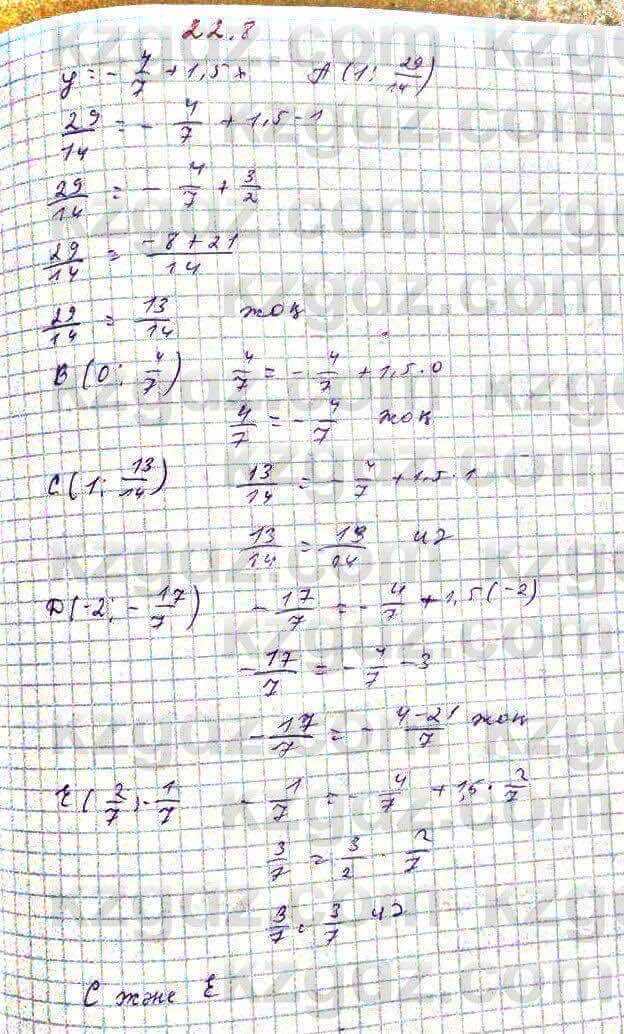 22.8
y = - 4/7 + 1,5x A(1; 29/14)
29/14 = - 4/7 + 1,5 · 1
29/14 = - 4/7 + 3/2
29/14 = (-8+21)/14
29/14 = 13/14 жоқ
B(0; 4/7) 4/7 = - 4/7 + 1,5 · 0
4/7 = - 4/7 жоқ
C(1; 13/14) 13/14 = - 4/7 + 1,5 · 1
13/14 = 13/14 иә
D(-2; - 17/7) - 17/7 = - 4/7 + 1,5(-2)
- 17/7 = - 4/7 - 3
- 17/7 = - (4-21)/7 жоқ
E(2/7; -1/7 - 1/7 = - 4/7 + 1,5 · 2/7
3/7 = 3/2 · 2/7
3/7 = 3/7 иә
C және E
kzgdz.com